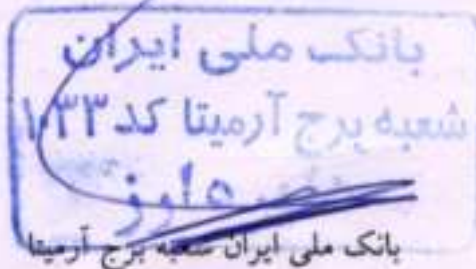 بانک ملی ایران
شعبه برج آرمیتا کد ۱۰۳۳
ارز
بانک ملی ایران شعبه برج آرمیتا